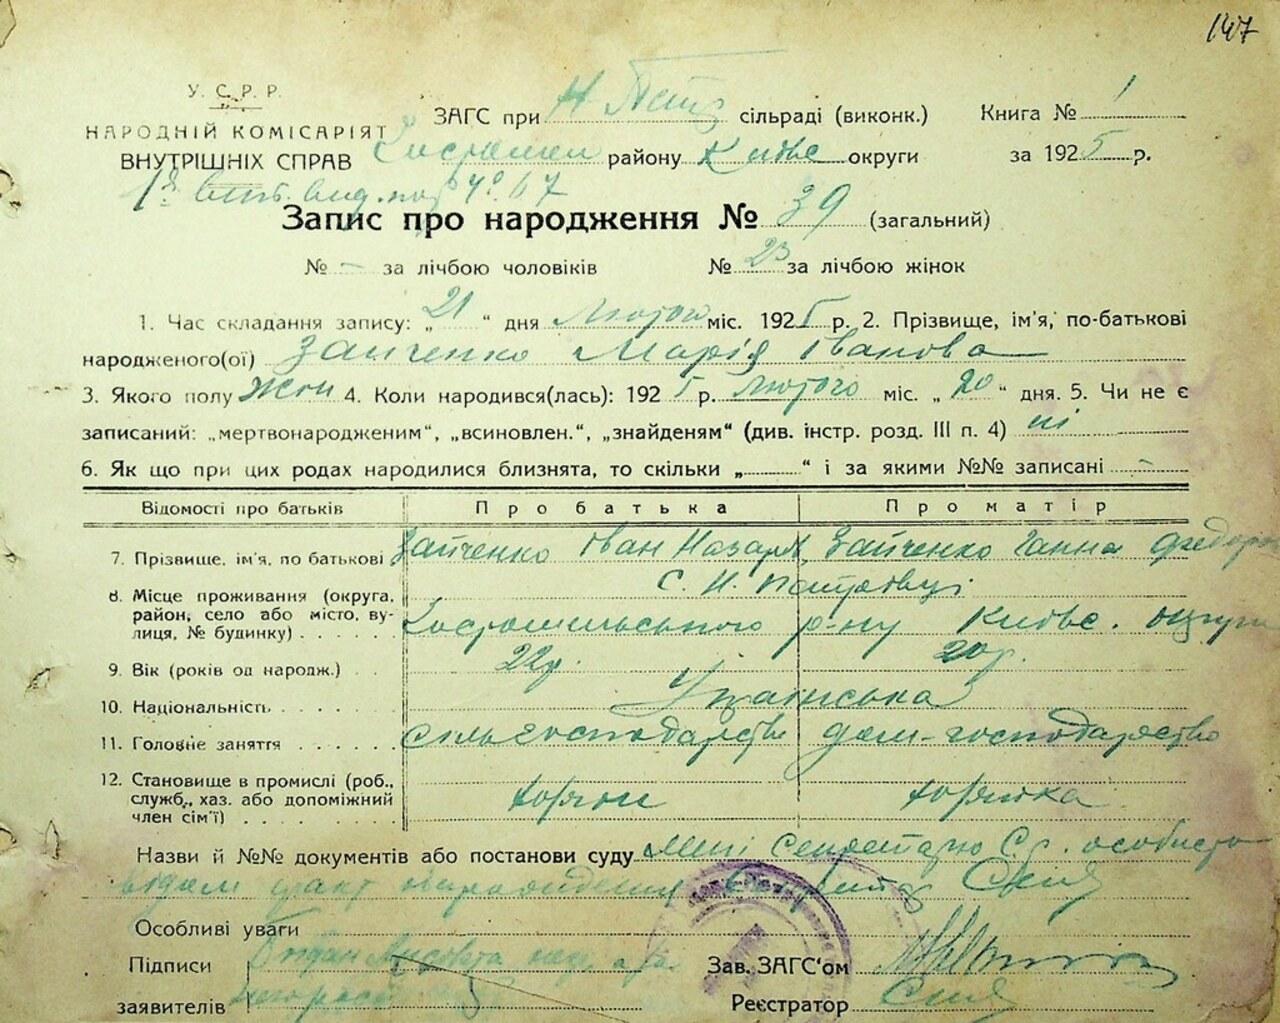 147
У. С. Р. Р.
НАРОДНІЙ КОМІСАРІЯТ
ВНУТРІШНІХ СПРАВ
ЗАГС при Н Петр сільраді (виконк.) Книга № 1
району Київс округи за 1925 р.
Запис про народження № 39 (загальний)
№ - за лічбою чоловіків № 23 за лічбою жінок
1. Час складання запису: „21“ дня Лютого міс. 1925 р. 2. Прізвище, ім'я, по-батькові
народженого(ої) Зайченко Марія Іванова
3. Якого полу жон 4. Коли народився(лась): 1925 р. лютого міс. „20“ дня. 5. Чи не є
записаний: „мертвонародженим“, „всиновлен.“, „знайденям“ (див. інстр. розд. III п. 4) ні
6. Як що при цих родах народилися близнята, то скільки „..........“ і за якими №№ записані -
Відомості про батьків Про батька Про матір
7. Прізвище, ім'я, по батькові Зайченко Іван Назар Зайченко Ганна Федор
8. Місце проживання (округа, район, село або місто, вулиця, № будинку) с. Н. Петрівці
р-ну Київс. округи
9. Вік (років од народж.) 22р. 20р.
10. Національність Українська
11. Головне заняття сільськогосподарство дом-господарство
12. Становище в промислі (роб., служб., хаз. або допоміжний член сім'ї)
Назви й №№ документів або постанови суду Мені Секретарю С.р. особисто
відом факт народження Секретар
Особливі уваги
Підписи
заявителів
Зав. ЗАГС'ом
Реєстратор